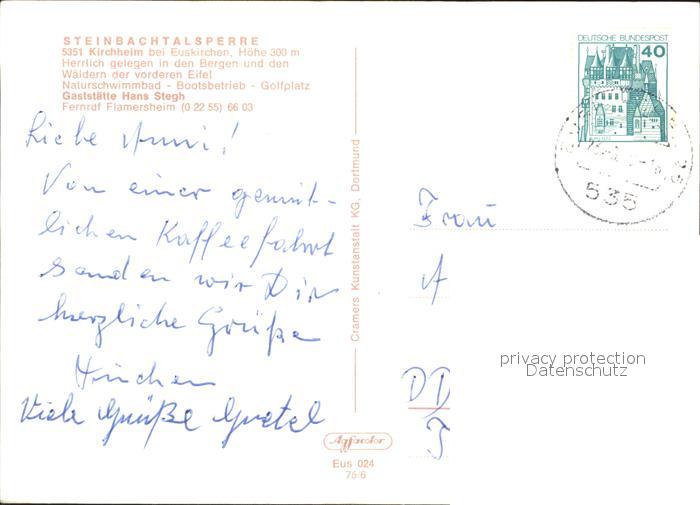 STEINBACHTALSPERRE
5351 Kirchheim bei Euskirchen, Höhe 300 m
Herrlich gelegen in den Bergen und den
Wäldern der vorderen Eifel
Naturschwimmbad - Bootsbetrieb - Golfplatz
Gaststätte Hans Stegh
Fernruf Flamersheim (0 22 55) 66 03
Liebe Anni!
Von einer gemüt-
lichen Kaffeefahrt
senden wir Dir
herzliche Grüße
Viele Grüße Gretel
Cramers Kunstanstalt KG, Dortmund
Agfacolor
Eus 024
75/6
DEUTSCHE BUNDESPOST
40
535
Frau
A
DD
privacy protection
Datenschutz